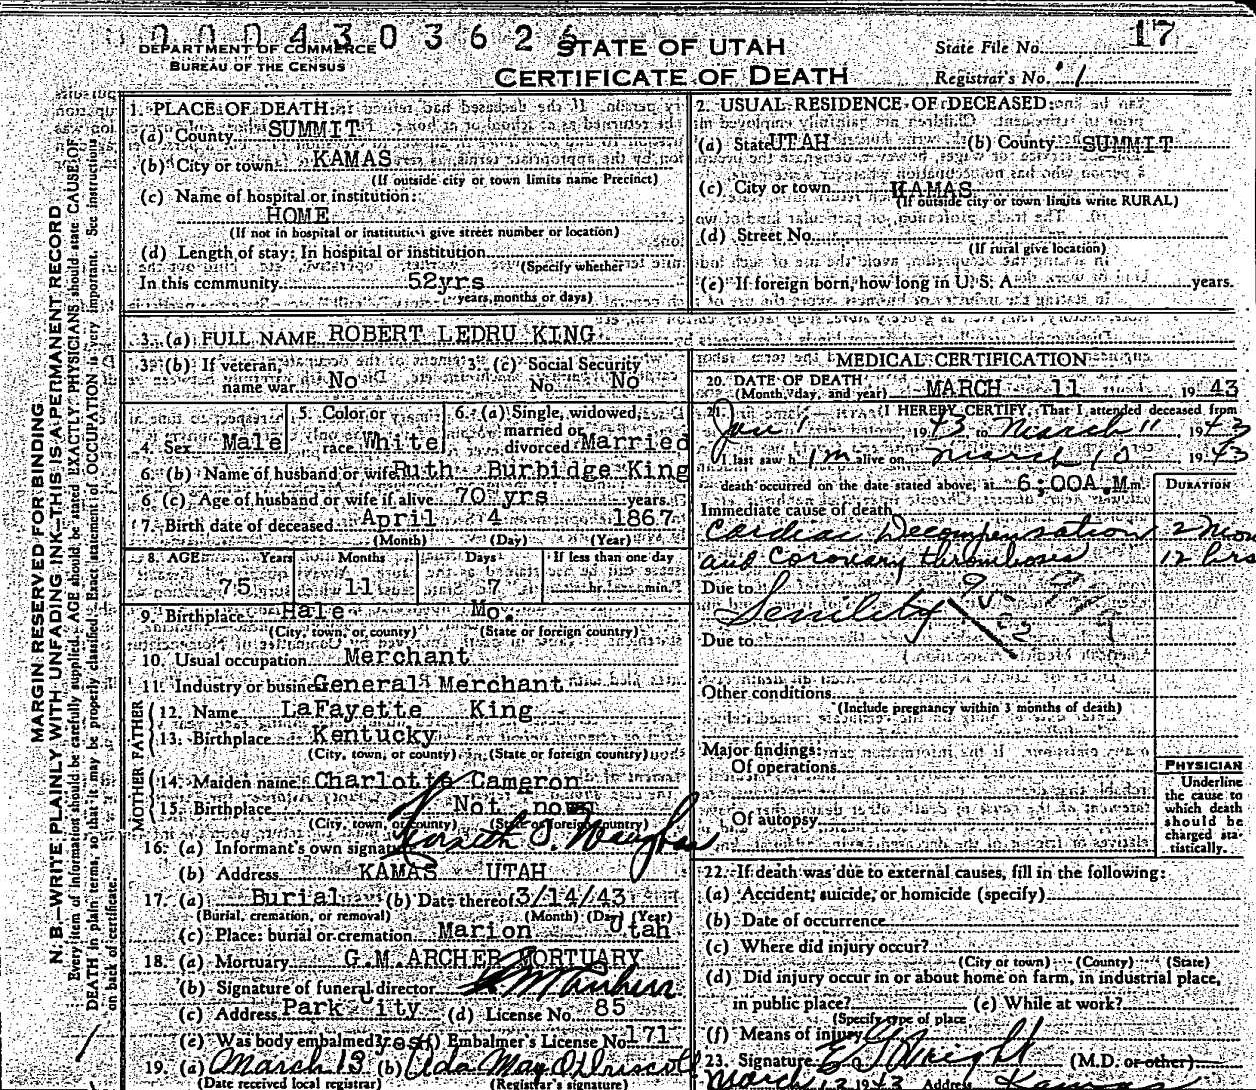 0004303626
DEPARTMENT OF COMMERCE
BUREAU OF THE CENSUS
STATE OF UTAH
CERTIFICATE OF DEATH
State File No. 17
Registrar's No. 1
MARGIN RESERVED FOR BINDING
N. B.—WRITE PLAINLY WITH UNFADING INK—THIS IS A PERMANENT RECORD
Every item of information should be carefully supplied. AGE should be stated EXACTLY. PHYSICIANS should state CAUSE OF
DEATH in plain terms, so that it may be properly classified. Exact statement of OCCUPATION is very important. See instructions
on back of certificate.
1. PLACE OF DEATH:
(a) County SUMMIT
(b) City or town KAMAS
(If outside city or town limits name Precinct)
(c) Name of hospital or institution:
HOME
(If not in hospital or institution give street number or location)
(d) Length of stay: In hospital or institution
(Specify whether
In this community 52yrs
years, months or days)
2. USUAL RESIDENCE OF DECEASED:
(a) State UTAH (b) County SUMMIT
(c) City or town KAMAS
(If outside city or town limits write RURAL)
(d) Street No.
(If rural give location)
(e) If foreign born, how long in U. S. A. years.
3. (a) FULL NAME ROBERT LEDRU KING
3. (b) If veteran, name war No
3. (c) Social Security No. No
4. Sex Male
5. Color or race White
6. (a) Single, widowed, married or divorced Married
6. (b) Name of husband or wife Ruth Burbidge King
6 (c) Age of husband or wife if alive 70 yrs years.
7. Birth date of deceased April 4 1867
(Month) (Day) (Year)
8. AGE: Years Months Days If less than one day
75 11 7 hr. min.
9. Birthplace Hale Mo.
(City, town, or county) (State or foreign country)
10. Usual occupation Merchant
11. Industry or business General Merchant
FATHER
12. Name LaFayette King
13. Birthplace Kentucky
(City, town, or county) (State or foreign country)
MOTHER
14. Maiden name Charlotte Cameron
15. Birthplace Not nown
(City, town, or county) (State or foreign country)
16. (a) Informant's own signature
(b) Address KAMAS UTAH
17. (a) Burial (b) Date thereof 3/14/43
(Burial, cremation, or removal) (Month) (Day) (Year)
(c) Place: burial or cremation Marion Utah
18. (a) Mortuary G.M.ARCHER MORTUARY
(b) Signature of funeral director
(c) Address Park City (d) License No. 85
(e) Was body embalmed yes (f) Embalmer's License No. 171
19. (a) March 13 (b) Ada May O'Driscoll
(Date received local registrar) (Registrar's signature)
MEDICAL CERTIFICATION
20. DATE OF DEATH
(Month, day, and year) MARCH 11 1943
21. I HEREBY CERTIFY, That I attended deceased from
Jan 1 1943 to March 11 1943
I last saw him alive on March 10 1943
death occurred on the date stated above, at 6;00A.M m.
DURATION
Immediate cause of death
Cardiac Decompensation 2 Mon
and Coronary thrombosis 12 hrs
Due to
Senility
Due to
Other conditions
(Include pregnancy within 3 months of death)
Major findings:
Of operations
Of autopsy
PHYSICIAN
Underline
the cause to
which death
should be
charged sta-
tistically.
22. If death was due to external causes, fill in the following:
(a) Accident, suicide, or homicide (specify)
(b) Date of occurrence
(c) Where did injury occur?
(City or town) (County) (State)
(d) Did injury occur in or about home on farm, in industrial place,
in public place? (e) While at work?
(Specify type of place
(f) Means of injury
23. Signature Wright (M.D. or other)
March 12 1943 Address